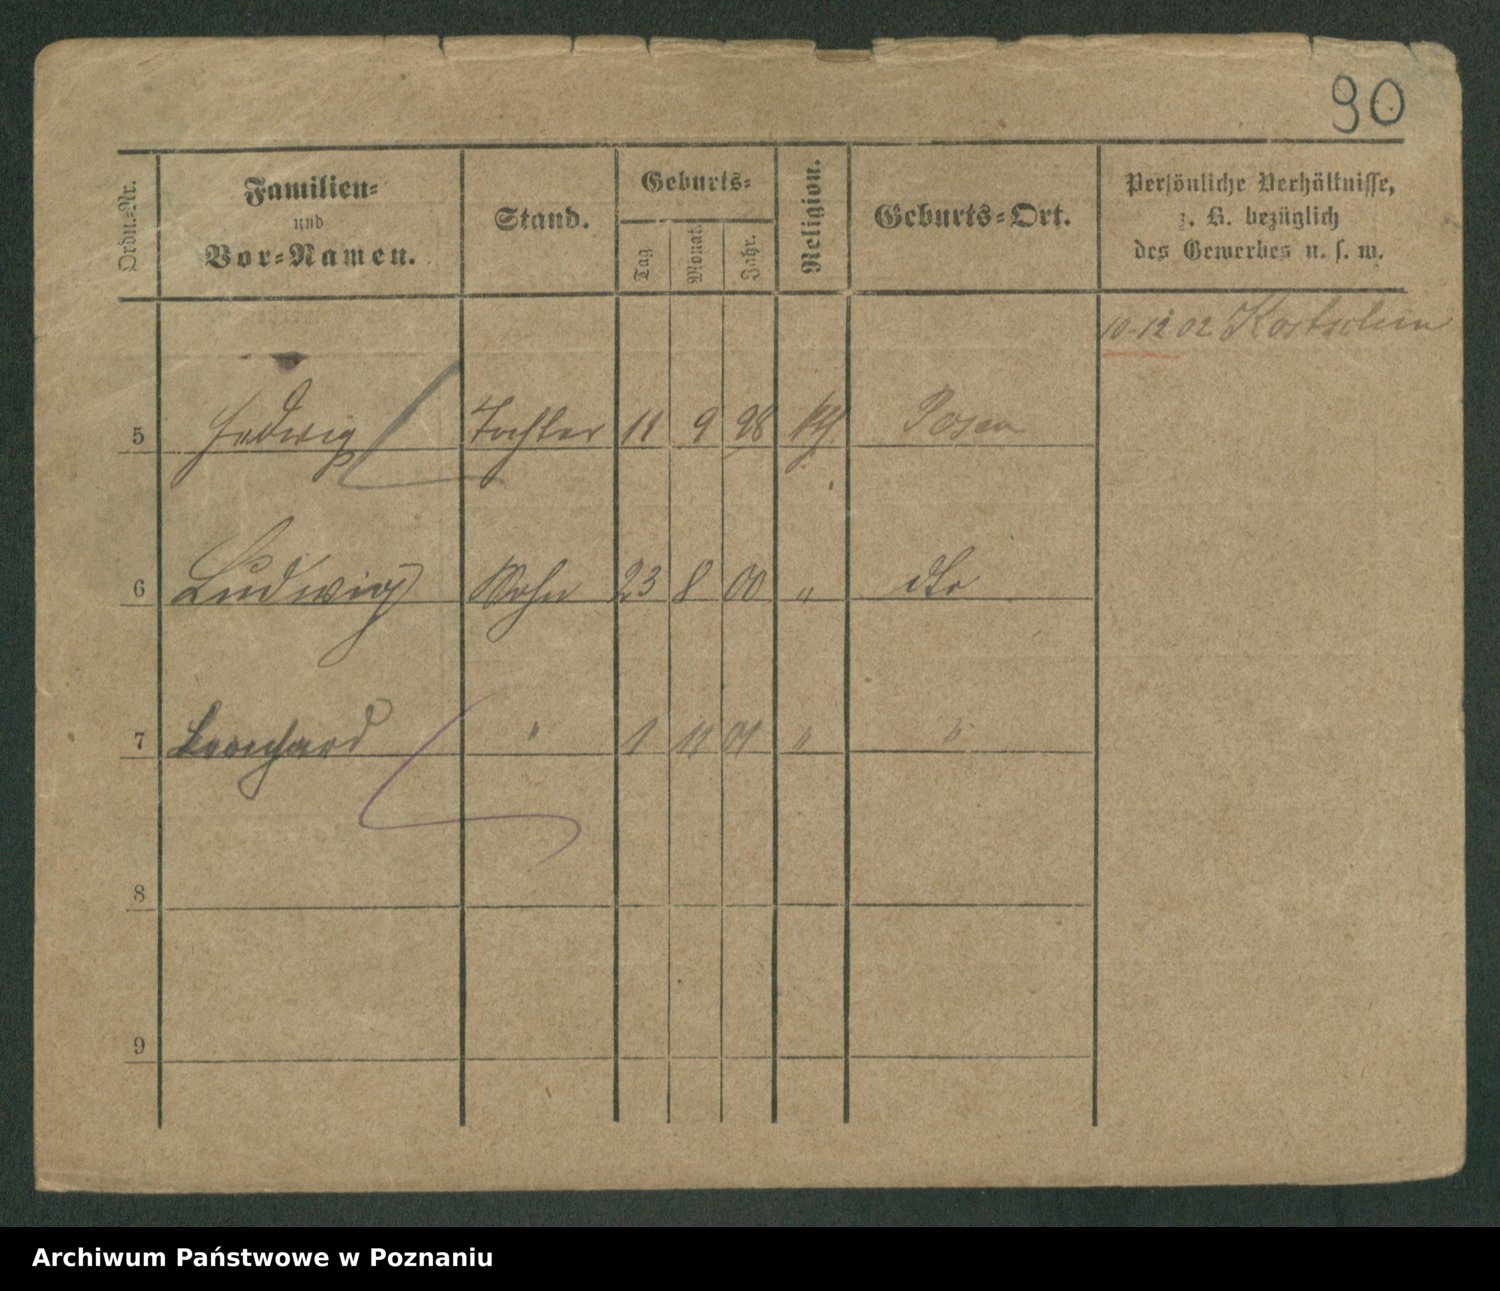 90
Ordn.-Nr.
Familien-
und
Vor-Namen.
Stand.
Geburts-
Tag
Monat.
Jahr.
Religion.
Geburts-Ort.
Persönliche Verhältnisse,
z. B. bezüglich
des Gewerbes u. s. w.
10.12 02
5 Hedwig Tochter 11 9 98 Posen
6 Ludwig Sohn 23 8 00 " dto
7 Leonhard " 1 11 01 " "
8
9
Archiwum Państwowe w Poznaniu